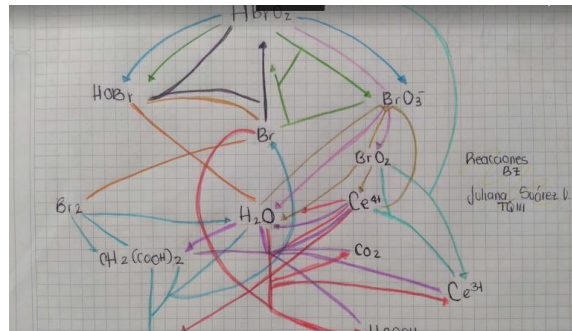 HBrO2
HOBr
BrO3⁻
Br
BrO2
Reacciones
BZ
Juliana Suárez V.
TQIII
Br2
H2O
Ce4+
CH2(COOH)2
CO2
Ce3+
HCOOH